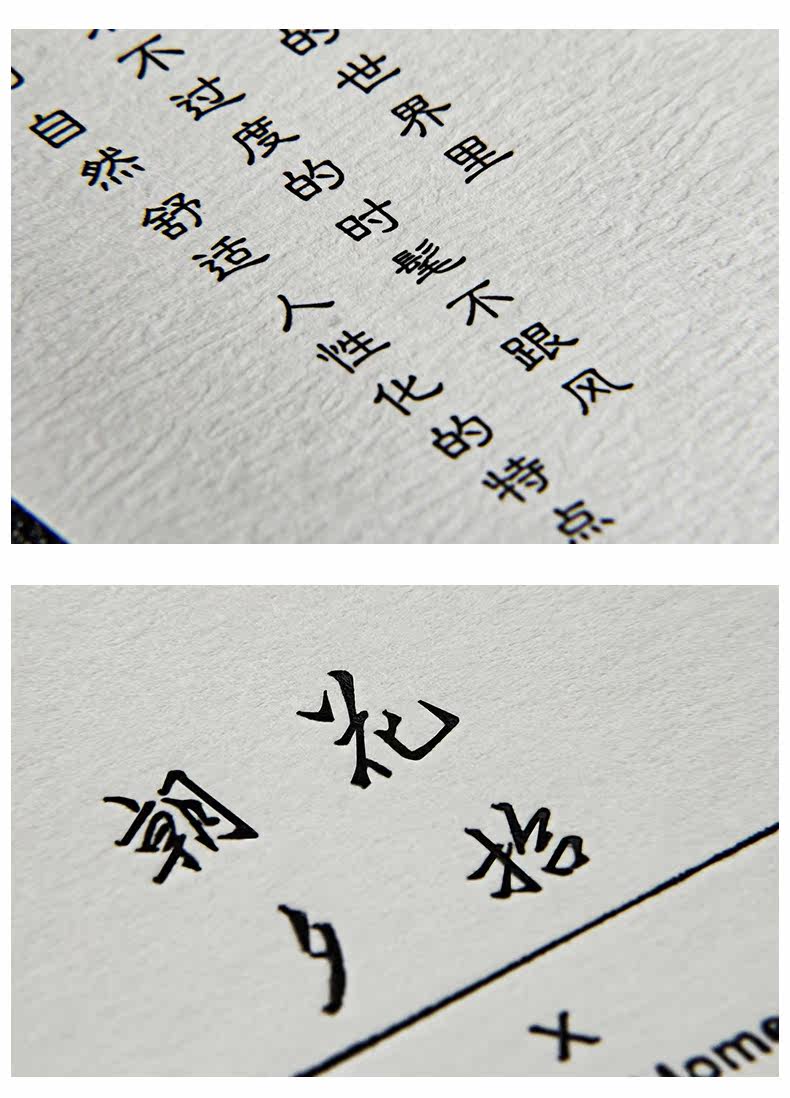 的世界里
不过度的时髦不跟风
自然舒适人性化的特点
朝花夕拾
X
Mome